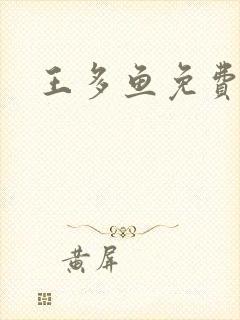 王多鱼免費
黄屏